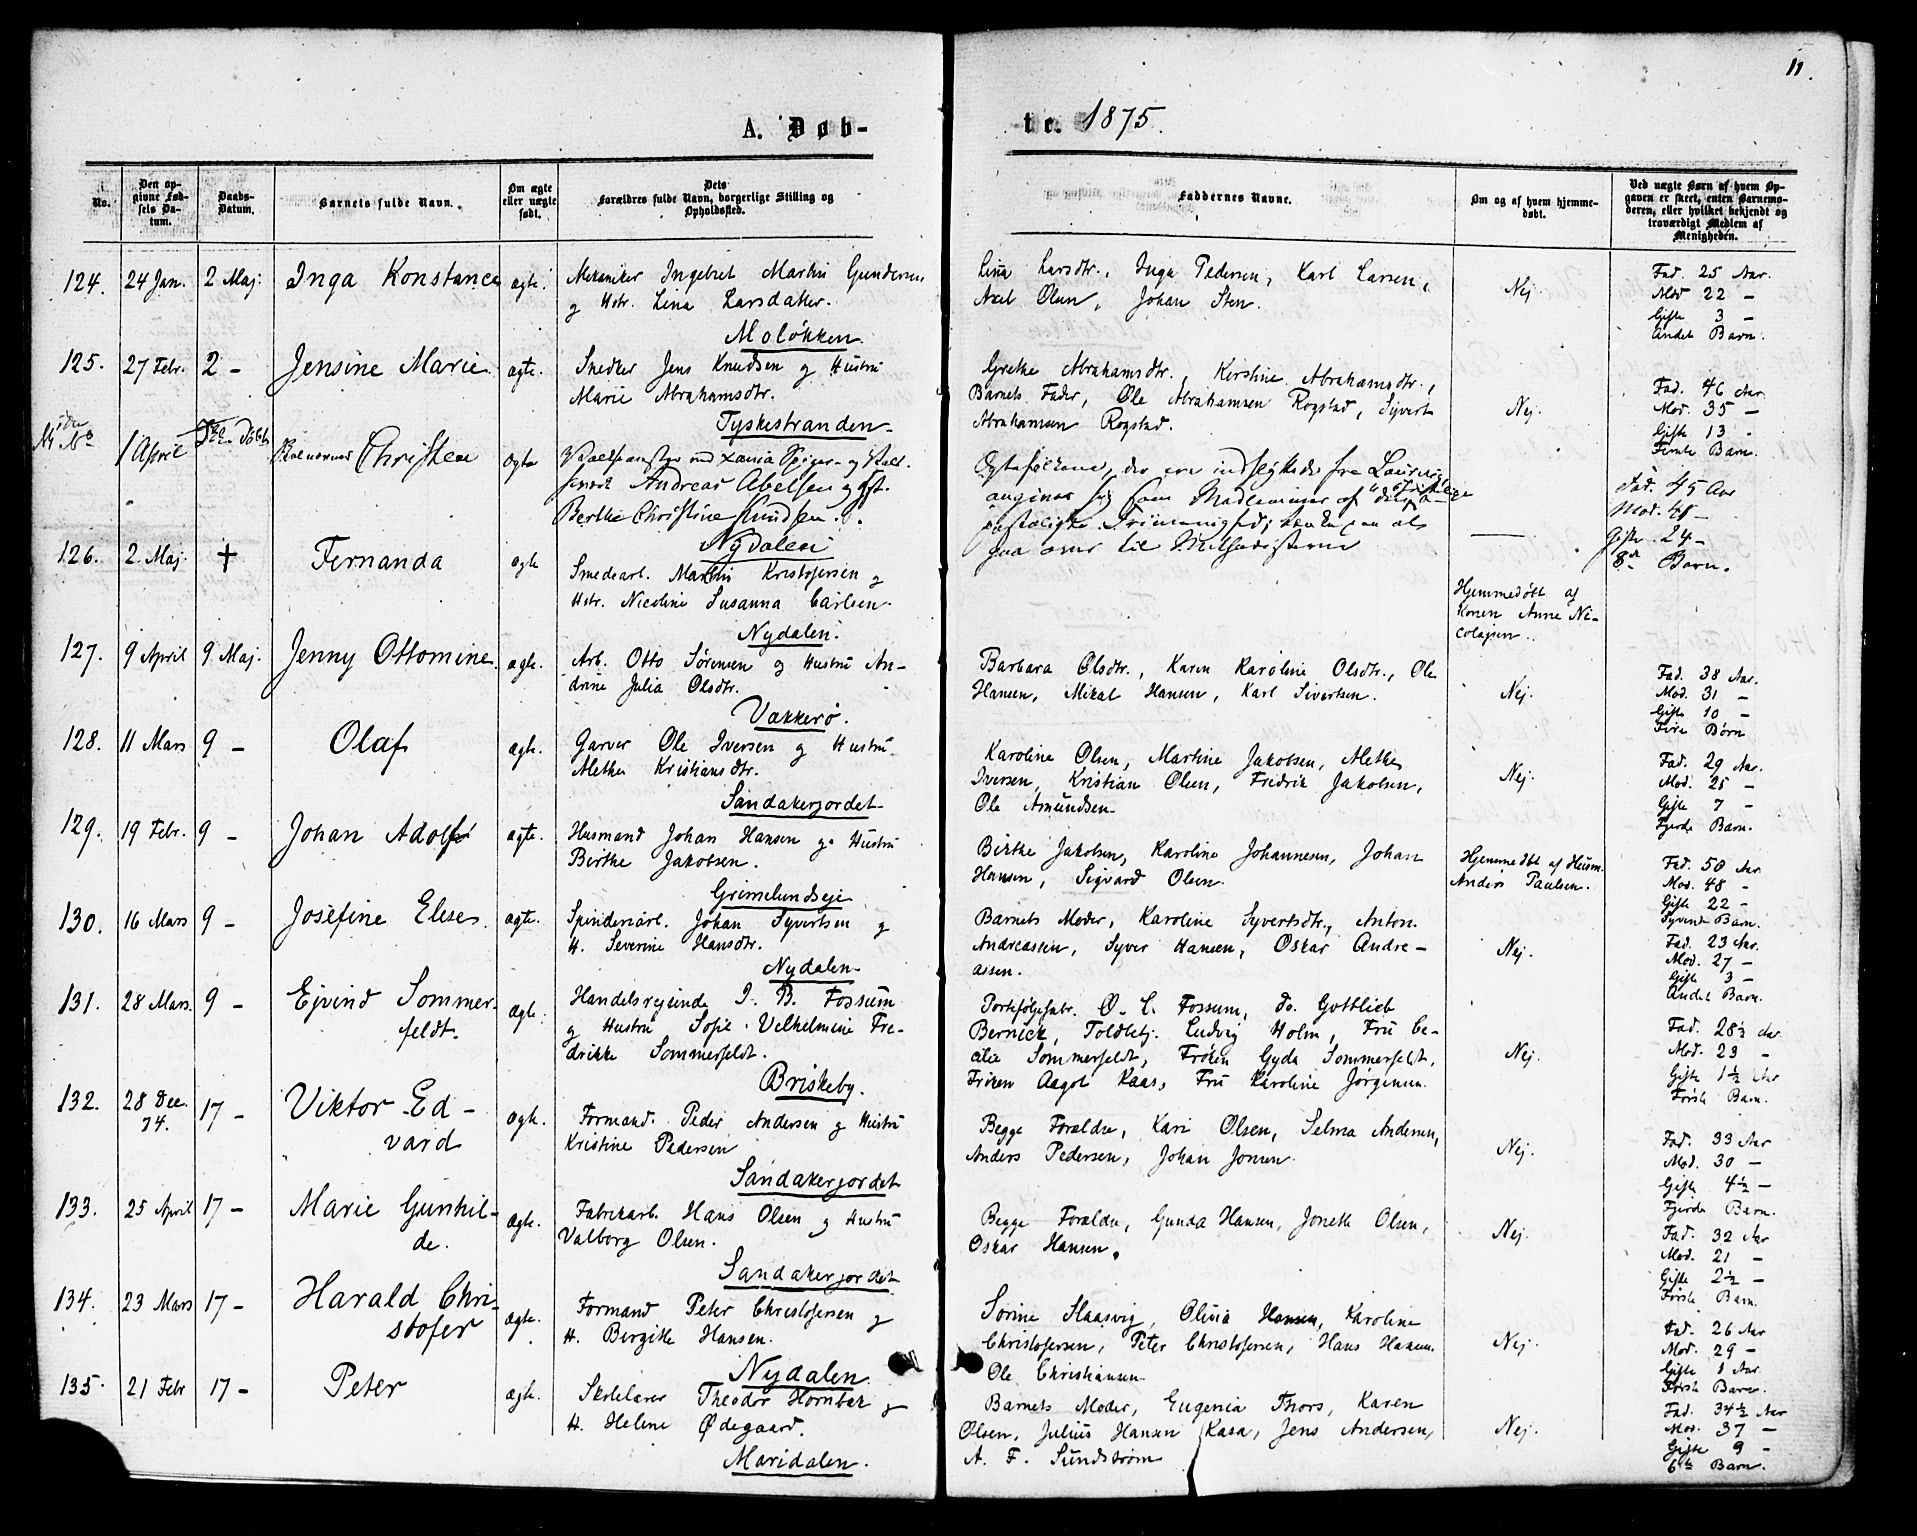 11.
A. Døb-
te. 1875.
No.
Den op-
givne Fød-
sels Da-
tum.
Daabs-
Datum.
Barnets fulde Navn.
Om ægte
eller uægte
født.
Dets
Forældres fulde Navn, borgerlige Stilling og
Opholdssted.
Faddernes Navne.
Om og af hvem hjemme-
døbt.
Ved uægte Børn af hvem Op-
gaven er skeet, enten Barnemo-
deren, eller hvilket bekjendt og
troværdigt Medlem af
Menigheden.
124. 24 Jan. 2 Maj. Inga Konstance ægte.
Mekaniker Ingebret Martin Gundersen
og Hstr. Lina Larsdatter.
Moløkken.
Lina Larsdtr., Inga Pedersen, Karl Larsen,
Axel Olsen, Johan Sten.
Nej.
Fad. 25 Aar.
Mod 22 –
Gifte 3 –
Andet Barn.
125. 27 Febr. 2 – Jensine Marie ægte.
Snedker Jens Knudsen og Hustru
Marie Abrahamsdtr.
Tyskestranden.
Grethe Abrahamsdtr., Kirstine Abrahamsdtr.,
Barnets Fader, Ole Abrahamsen Rogstad, Syvert
Abrahamsen Rogstad.
Nej.
Fad. 46 Aar.
Mod. 35 –
Gifte 13 –
Femte Barn.
1 April Christen ægte
Andreas Abelsen og Hst.
Berthe Christine Knudsen.
Nydalen
Fad. 45 Aar
Mod. 45 –
Gifte 24 –
8de Barn.
126. 2 Maj. † Fernanda ægte
Smedearb. Martin Kristofersen og
Hstr. Nicoline Susanna Carlsen.
Nydalen.
Hjemmedøbt af
Konen Anne Ni-
colajsen.
127. 9 April 9 Maj. Jenny Ottomine. ægte.
Arb. Otto Sørensen og Hustru An-
drine Julia Olsdtr.
Vækkerø.
Barbara Olsdtr., Karen Karoline Olsdtr., Ole
Hansen, Mikal Hansen, Karl Sivertsen.
Nej.
Fad. 38 Aar.
Mod. 31 –
Gifte 10 –
Fire Børn
128. 11 Mars 9 – Olaf ægte.
Garver Ole Iversen og Hustru
Alethe Kristiansdtr.
Sandakerjordet
Karoline Olsen, Martine Jakobsen, Alethe
Iversen, Kristian Olsen, Fredrik Jakobsen,
Ole Amundsen.
Nej.
Fad. 29 Aar.
Mod. 25 –
Gifte 7 –
Fjerde Barn.
129. 19 Febr. 9 – Johan Adolf ægte.
Husmand Johan Hansen og Hustru
Birthe Jakobsen.
Grimelundseje
Birthe Jakobsen, Karoline Johannesen, Johan
Hansen, Sigvard Olsen.
Hjemmedøbt af Husm.
Anders Paulsen.
Fad. 50 Aar
Mod. 48 –
Gifte 22 –
Syvende Barn.
130. 16 Mars 9 – Josefine Elise. ægte.
Spinderiarb. Johan Syvertsen og
H. Severine Hansdtr.
Nydalen.
Barnets Moder, Karoline Syvertsdtr., Anton
Andreassen, Syver Hansen, Oskar Andre-
assen.
Nej.
Fad. 23 Aar.
Mod. 27 –
Gifte 3 –
Andet Barn.
131. 28 Mars. 9 – Ejvind Sommer-
feldt. ægte.
Handelsrejsende I. B. Fossum
og Hustru Sofie Vilhelmine Fre-
drikke Sommerfeldt.
Briskeby.
Porteføljefabr. O. C. Fossum, do. Gottlieb
Bernick, Toldbetj. Ludvig Holm, Fru Ce-
cilie Sommerfeldt, Frøken Gyda Sommerfeldt,
Frøken Aagot Kaas, Fru Karoline Jørgensen.
Nej.
Fad. 28½ Aar
Mod. 23 –
Gifte 1½ Aar
Første Barn.
132. 28 Dec.
74. 17 – Viktor Ed-
vard ægte.
Formand. Peder Andersen og Hustru
Kristine Pedersen
Sandakerjordet
Begge Forældre, Kari Olsen, Selma Andersen,
Anders Pedersen, Johan Jonsen.
Nej.
Fad. 33 Aar
Mod. 30 –
Gifte 4½ –
Fjerde Barn.
133. 25 April 17 – Marie Gunhil-
de. ægte.
Fabrikarb. Hans Olsen og Hustru
Valborg Olsen.
Sandakerjordet
Begge Forældre, Gunda Hansen, Jonette Olsen,
Oskar Hansen.
Nej.
Fad. 32 Aar
Mod. 21 –
Gifte 2½ –
Første Barn.
134. 23 Mars 17 – Harald Chri-
stofer ægte.
Formand Peter Christofersen og
H. Bergitte Hansen.
Nydalen.
Sorine Haasvig, Olina Hansen, Karoline
Christofersen, Peter Christofersen, Hans Hansen
Ole Christiansen
Nej.
Fad. 26 Aar
Mod. 29 –
Gifte 1 Aar.
Første Barn.
135. 21 Febr 17 – Peter ægte.
Skolelærer Theodor Hornbæk og
H. Helene Ødegaard.
Maridalen.
Barnets Moder, Eugenia Thors, Karen
Olsen, Julius Hansen Kasa, Jens Andersen,
A. F. Sundstrøm
Nej.
Fad. 34½ Aar
Mod. 37 –
Gifte 9 –
6te Barn.